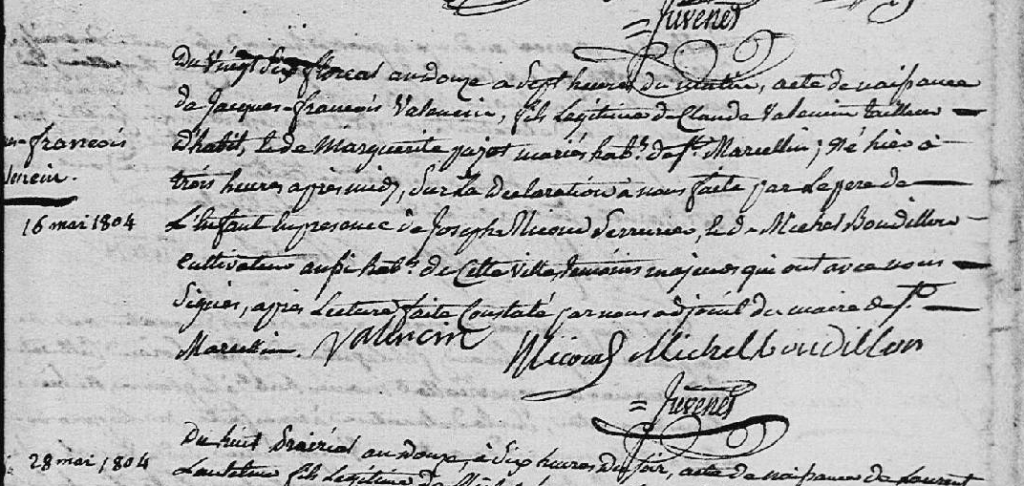 = Juvenet
Du Vingt Six floreal an douze a Sept heures du matin, acte de naissance
de Jacques-francois Valencin, fils Légitime de Claude Valencin tailleur
d'habit, & de Marguerite pajot mariés hab.s de S.t Marcellin; Né hier à
françois
trois heures après midy, Sur La declaration à nous faite par Le pere de
16 mai 1804
L'enfant En presence de Joseph Nicoud Serrurier, & de Michel Boudillon
Cultivateur aussi hab.s de Cette Ville, temoins majeurs qui ont avec nous
Signés, après Lecture faite Constaté par nous adjoint du maire de S.t
Marcellin. Valencin Nicoud Michel boudillon
= Juvenet
Du huit prairial an douze, à Six heures du soir, acte de naissance de Laurent
28 mai, 1804
fils Légitime de